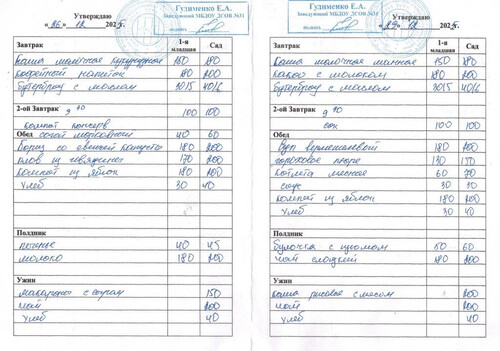 Утверждаю
Гудименко Е.А.
Заведующий МБДОУ ДСОВ №31
« 26 » 12 2025г.
Завтрак 1-я младшая Сад
Каша молочная кукурузная 150 180
Кофейный напиток 180 200
Бутерброд с маслом 30/5 40/6
2-ой Завтрак 9 10 100 100
компот консерв
Обед соте морковный 40 60
Борщ со свежей капусты 180 200
плов из свинины 170 200
компот из яблок 180 200
хлеб 30 40
Полдник
печенье 40 45
молоко 180 200
Ужин
макароны с сыром 150
чай 200
хлеб 40
Гудименко Е.А.
Заведующий МБДОУ ДСОВ №31
Утверждаю
« 29 » 12 2025г.
Завтрак 1-я младшая Сад
Каша молочная манная 150 180
какао с молоком 180 200
Бутерброд с маслом 30/5 40/6
2-ой Завтрак 9 10
сок 100 100
Обед
Суп вермишелевый 180 200
гороховое пюре 130 150
котлета мясная 60 70
соус 30 30
компот из яблок 180 200
хлеб 30 40
Полдник
булочка с 60
чай сладкий 180 200
Ужин
каша рисовая с маслом 200
чай 200
хлеб 40